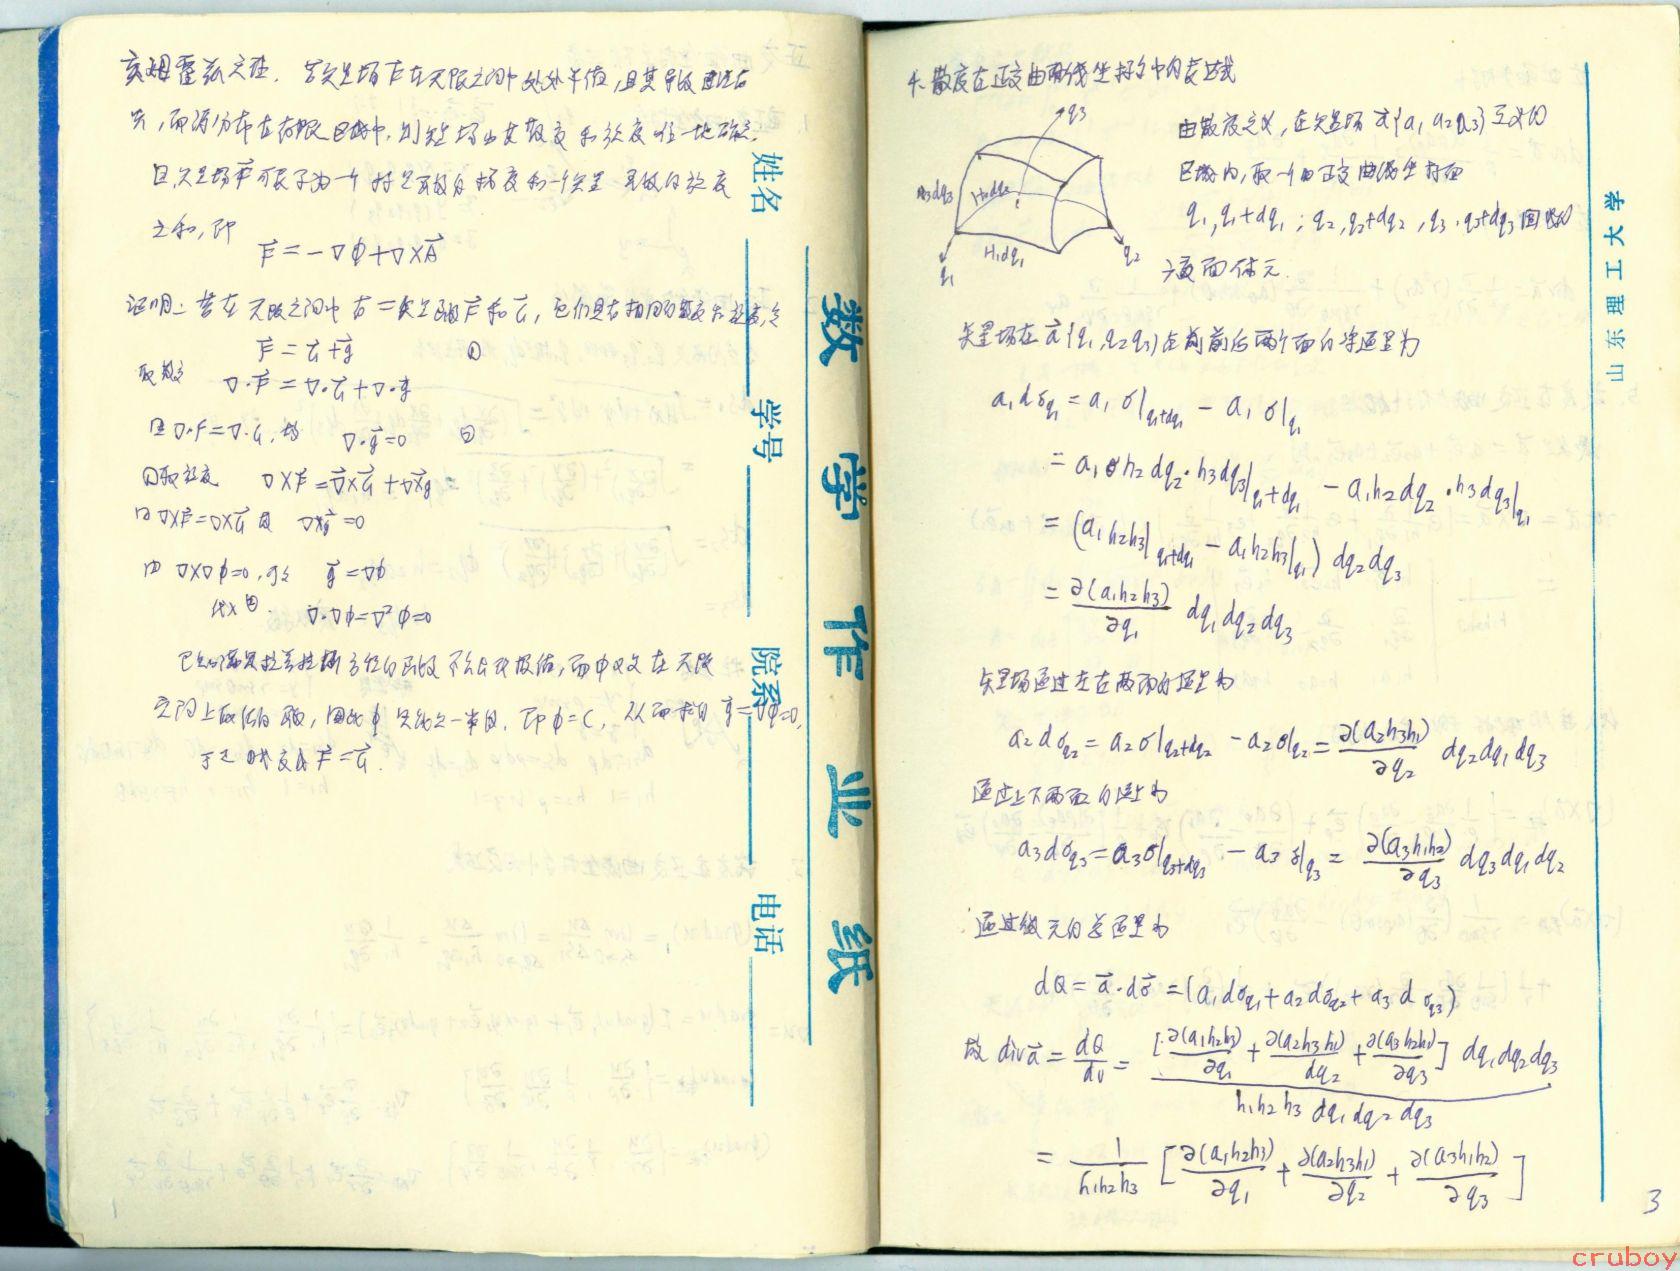 亥姆霍兹定理. 若矢量场F在无限空间中处处单值,且其导数连续有
界,而源分布在有限区域中,则矢量场由其散度和旋度唯一地确定.
且矢量场F可表示为一个标量函数的梯度和一个矢量函数的旋度
之和,即
F⃗ = -∇φ+∇×A⃗
证明: 若在无限空间中有二矢量函数F⃗和G⃗,它们具有相同的散度和旋度,令
F⃗ = G⃗+g⃗ ①
取散度 ∇·F⃗ = ∇·G⃗+∇·g⃗
且∇·F=∇·G⃗,故 ∇·g⃗=0 ②
①取旋度 ∇×F⃗ = ∇×G⃗+∇×g⃗
由∇×F⃗=∇×G⃗ 得 ∇×g⃗=0
由 ∇×∇φ=0, g⃗=∇φ
代入② ∇·∇φ=∇²φ=0
已知满足拉普拉斯方程的函数不会出现极值,而φ又是在无限
空间上取值的函数,因此φ只能是一常数,即φ=C,从而求得g⃗=∇φ=0,
于是F⃗=G⃗.
数学作业纸
姓名
学号
院系
电话
1
4. 散度在正交曲线坐标系中的表达式
q3
H3dq3
H2dq2
H1dq1
q1
q2
由散度定义,在矢量场a⃗{a1 a2 a3}定义的
区域内,取一个由正交曲线坐标面
q1, q1+dq1 ; q2, q2+dq2 , q3, q3+dq3 围成的
六面体元.
矢量场在a⃗(q1,q2 q3)点前后两个面的净通量为
a1dσq1 = a1σ|q1+dq1 - a1σ|q1
= a1h2dq2·h3dq3|q1+dq1 - a1h2dq2·h3dq3|q1
= (a1h2h3|q1+dq1 - a1h2h3|q1) dq2dq3
= ∂(a1h2h3)/∂q1 dq1dq2dq3
矢量场通过左右两面的通量为
a2dσq2 = a2σ|q2+dq2 - a2σ|q2 = ∂(a2h3h1)/∂q2 dq2dq1dq3
通过上下两面的通量为
a3dσq3 = a3σ|q3+dq3 - a3σ|q3 = ∂(a3h1h2)/∂q3 dq3dq1dq2
通过微元的总通量为
dQ = a⃗·dσ⃗ = (a1dσq1+a2dσq2+a3dσq3)
故 diva⃗ = dQ/dv = [∂(a1h2h3)/∂q1 + ∂(a2h3h1)/dq2 + ∂(a3h2h1)/∂q3] dq1dq2dq3 / h1h2h3 dq1dq2dq3
= 1/h1h2h3 [∂(a1h2h3)/∂q1 + ∂(a2h3h1)/∂q2 + ∂(a3h1h2)/∂q3]
山东理工大学
3
cruboy